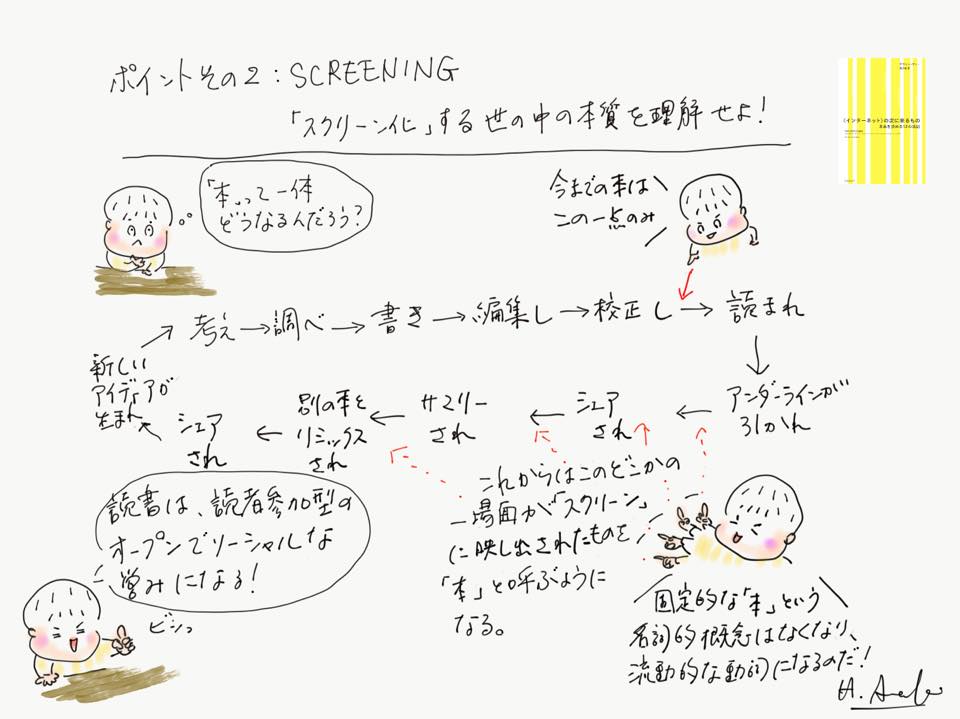 ポイントその2：SCREENING
「スクリーン化」する世の中の本質を理解せよ！
〈インターネット〉の次に来るもの
未来を決める12の法則
「本」って一体
どうなるんだろう？
今までの本は
この一点のみ
考え→調べ→書き→編集し→校正し→読まれ
アンダーラインが
引かれ
シェア
され
サマリー
され
別の本と
リミックス
され
シェア
され
新しい
アイディアが
生まれ
これからはこのどこかの
一場面が「スクリーン」
に映し出されたものを
「本」と呼ぶように
なる。
読書は、読者参加型の
オープンでソーシャルな
営みになる！
ビシっ
固定的な「本」という
名詞的概念はなくなり、
流動的な動詞になるのだ！